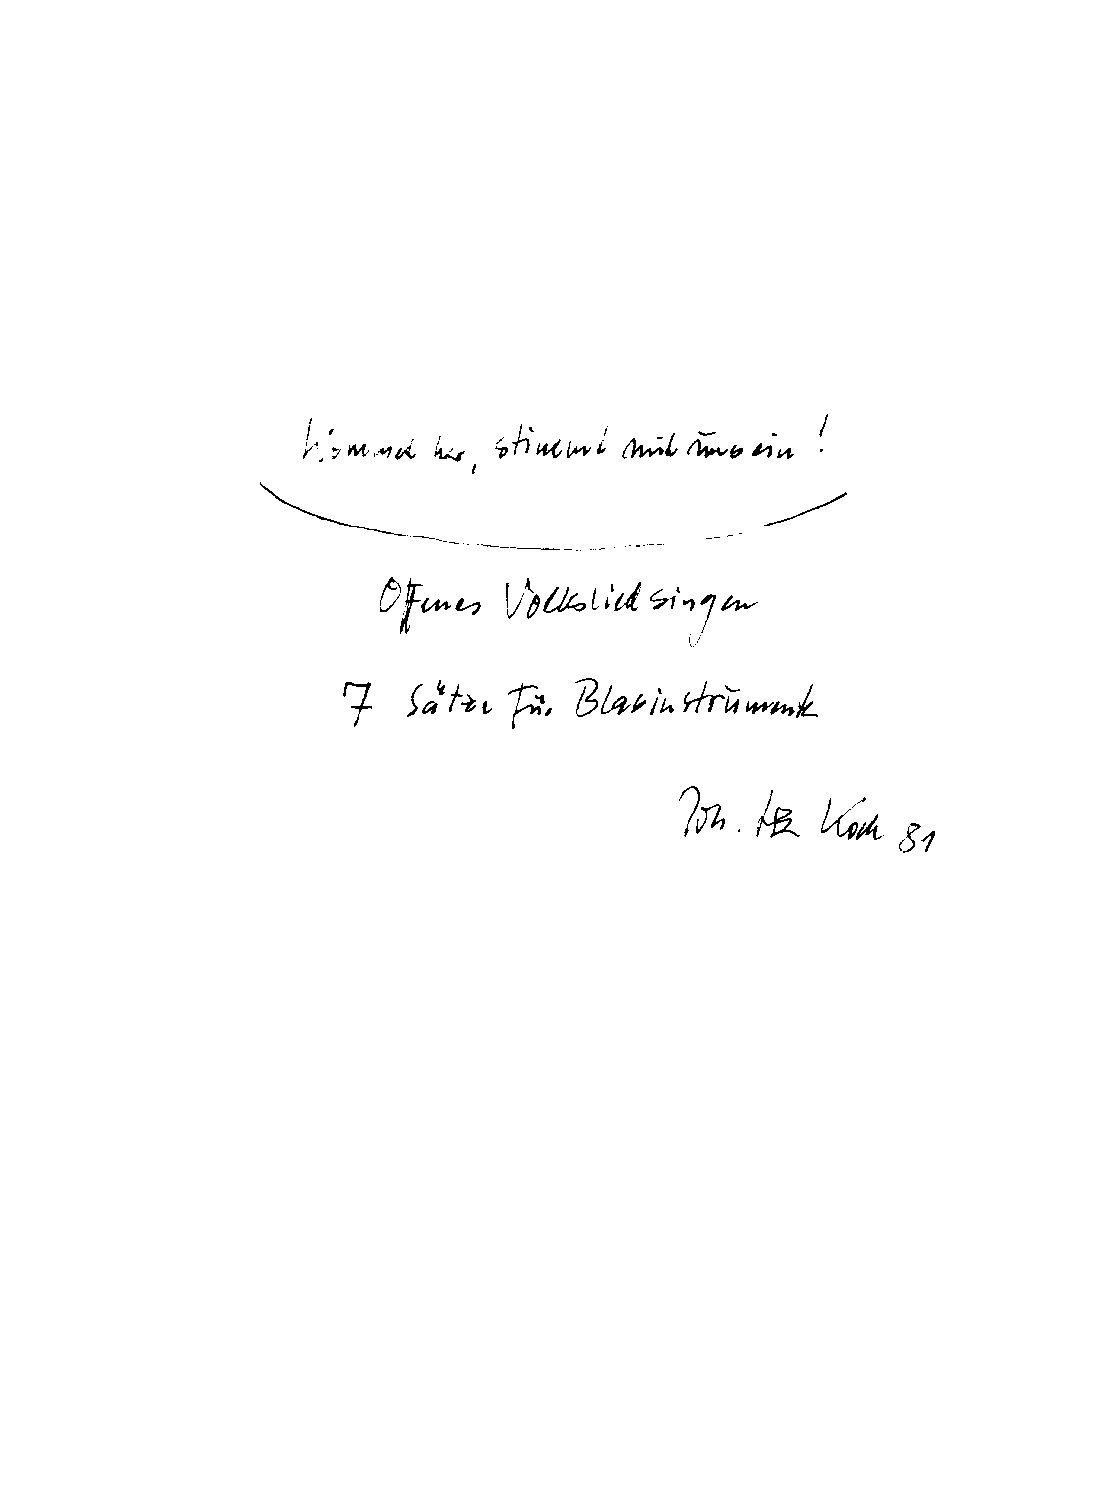 kommet her, stimmt mit uns ein!
Offenes Volksliedsingen
7 Sätze für Blasinstrumente
Joh. H. E. Koch 81